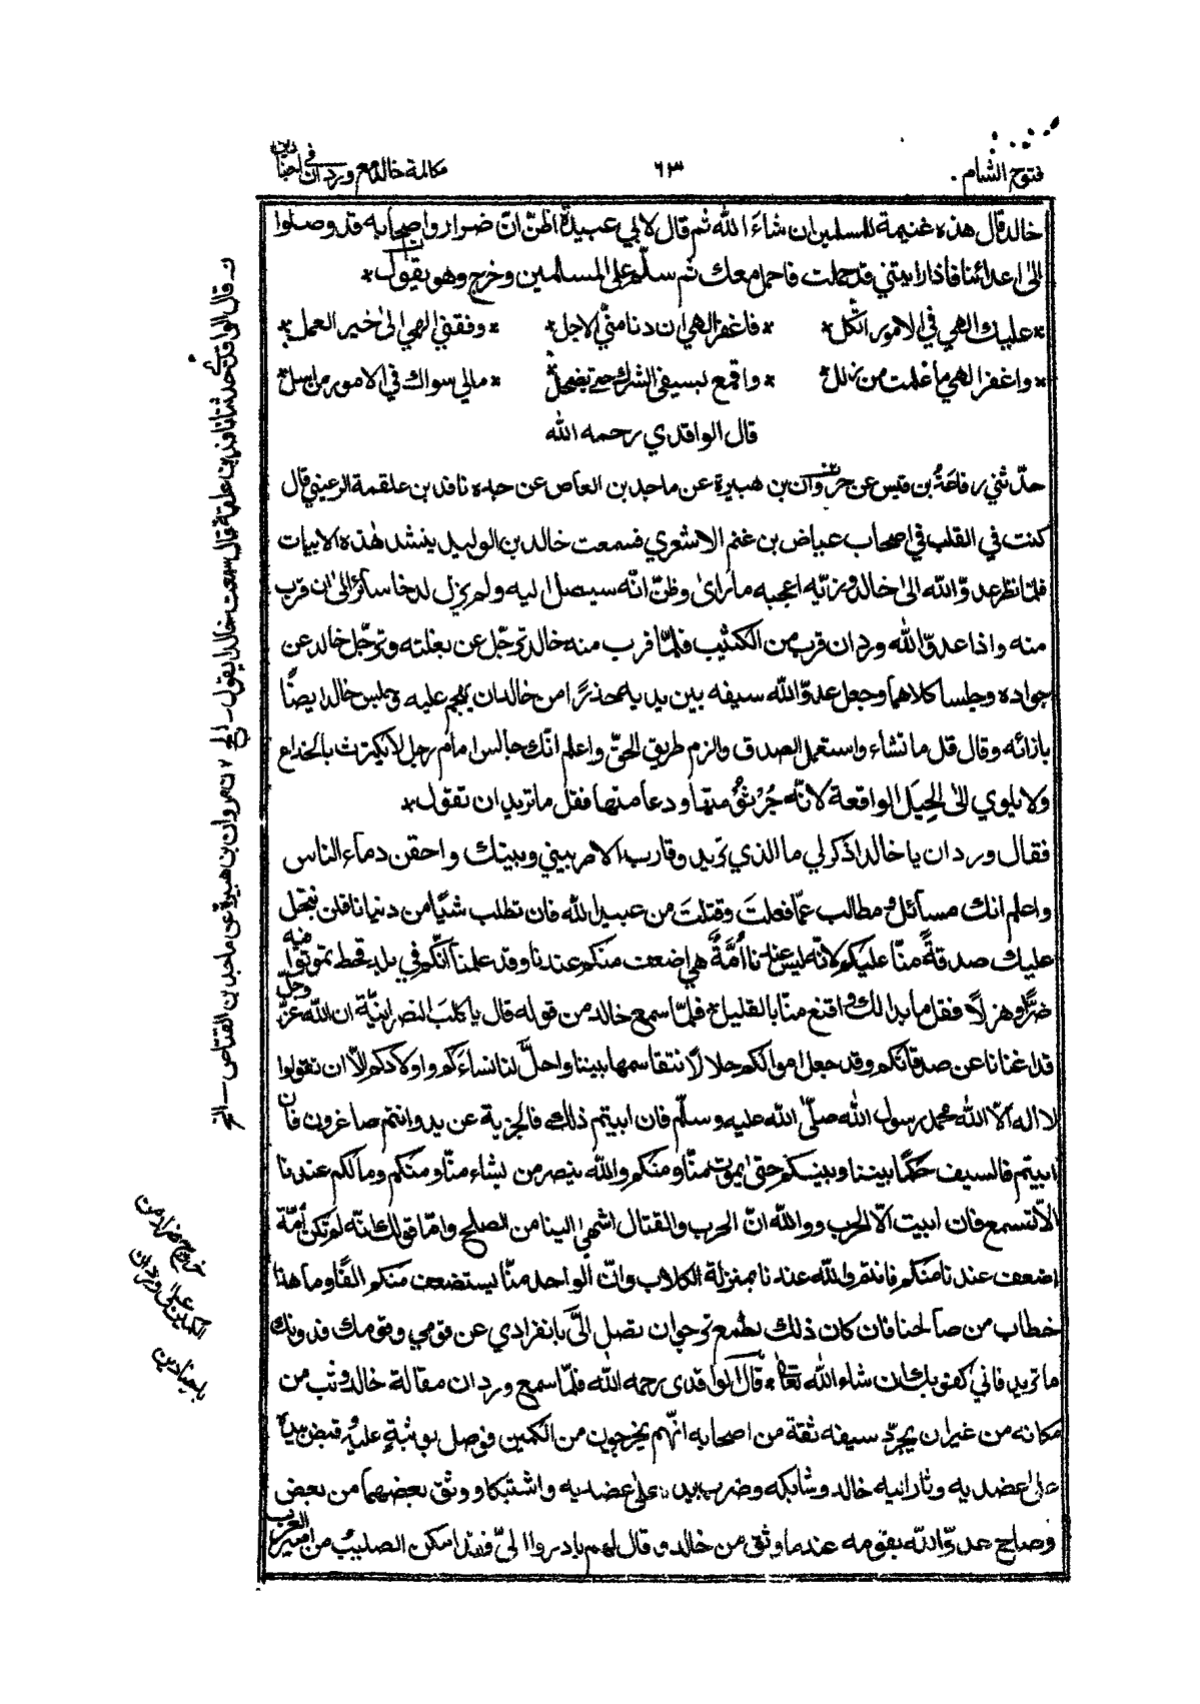 فتوح الشام
٦٣
مكالمة خالد مع وردان في اجنادين
خالد قال هذه غنيمة للمسلمين ان شاءَ الله ثم قال لابي عبيدة اظنّ انّ ضرار واصحابه قد وصلوا
الىٰ اعدائنا فاذا رايتني قد حملت فاحمل معك ثم سلّم على المسلمين وخرج وهو يقول*
*عليك الهي في الامور اتكل* *فاغفر الهي ان دنا منّي الاجل* *وفقني الهي الىٰ خير العمل*
*واغفر الهي ما عملت من زلل* *واقمع بسيفي الشرك حتى يضمحل* *مالي سواك في الامور من امل*
قال الواقدي رحمه الله
حدّثني رفاعَةُ بن قيس عن مروان بن هبيرة عن ماجد بن العاص عن جده نافد بن علقمة الرعيني قال
كنت في القلب في اصحاب عياض بن غنم الاشعري فسمعت خالد بن الوليد ينشد هٰذه الابيات
فلمّا نظر عدوّ الله الىٰ خالد وزيّه اعجبه ما رأىٰ وظنّ انّه سيصل اليه ولم يزل لدخا سائر الىٰ ان قرب
منه واذا عدوّ الله وردان قرب من الكثيب فلمّا قرب منه خالد ترجّل عن بغلته وترجّل خالد عن
جواده وجلسا كلاهما وجعل عدوّ الله سيفه بين يديه محذرًا من خالد ان يهجم عليه وجلس خالد ايضًا
بازائه وقال قل ما تشاء واستعمل الصدق والزم طريق الحقّ واعلم انّك جالس امام رجل لا يكترث بالخداع
ولا يلوي الىٰ الحِيَل الواقعة لانّه جُرْثُومُ منها ودعامتها فقل ما تريد ان تقول*
فقال وردان يا خالد اذكر لي ما الذي تريد وقارب الامر بيني وبينك واحقن دماء الناس
واعلم انك مسائل ومطالب عمّا فعلتَ وقتلتَ من عبيد الله فان تطلب شيًا من دنيانا فلن نبخل
عليك صدقةً منّا عليكم لانّه ليس عندنا اُمَّةٌ هي اضعف منكم عندنا وقد علمنا انّكم في بلد قحط تموتوا منه
ضرًّا وهزلًا فقل ما بدا لك واقنع منّا بالقليل فلمّا سمع خالد من قوله قال يا كلبَ النصرانيّة ان الله عزّ وجلّ
قد اغنانا عن صدقاتكم وقد جعل اموالكم حلالًا نتقاسمها بيننا واحلَّ لنا نساءَكم واولادكم الّا ان تقولوا
لا اله الّا الله محمد رسول الله صلّى الله عليه وسلّم فان ابيتم ذلك فالجزية عن يد وانتم صاغرون فان
ابيتم فالسيف حَكَمًا بيننا وبينكم حتى يموت منّا ومنكم والله ينصر من يشاء منّا ومنكم وما لكم عندنا
الّا تسمع فان ابيت الّا الحرب ووالله انّ الحرب والقتال اشهىٰ الينا من الصلح وامّا قولك انّه لم تكن اُمّة
اضعف عندنا منكم فانتم والله عندنا بمنزلة الكلاب وانّ الواحد منّا يستضعف منكم الفًا وما هذا
خطاب من صالحنا فان كان ذلك بطمع ترجوان تصل الىَّ بانفرادي عن قومي وقومك فدونك
ما تريد فاني كفو بك ان شاء الله تعالىٰ* قال الواقدي رحمه الله فلمّا سمع وردان مقالة خالد وثب من
مكانه من غير ان يجرّد سيفه ثقة من اصحابه انّهم يخرجون من الكمين فوصل بوثبةٍ عليه وقبض بيده
على عضديه وثار اليه خالد وشابكه وضرب بيده على عضديه واشتبكا ووثق بعضهما من بعض
وصاح عدوّ الله بقومه عندما وثق من خالد وقال لهم بادروا الىّ فقد امكن الصليب من امير العرب
ن قال الواقدي حدثنا نافد بن علقمة قال سمعت خالدا يقول ـ الخ
٧ ن مروان بن هبيرة عن ماجد بن القتاص ـ الخ
خروج ضرار من
الكمين على وردان
باجنادين